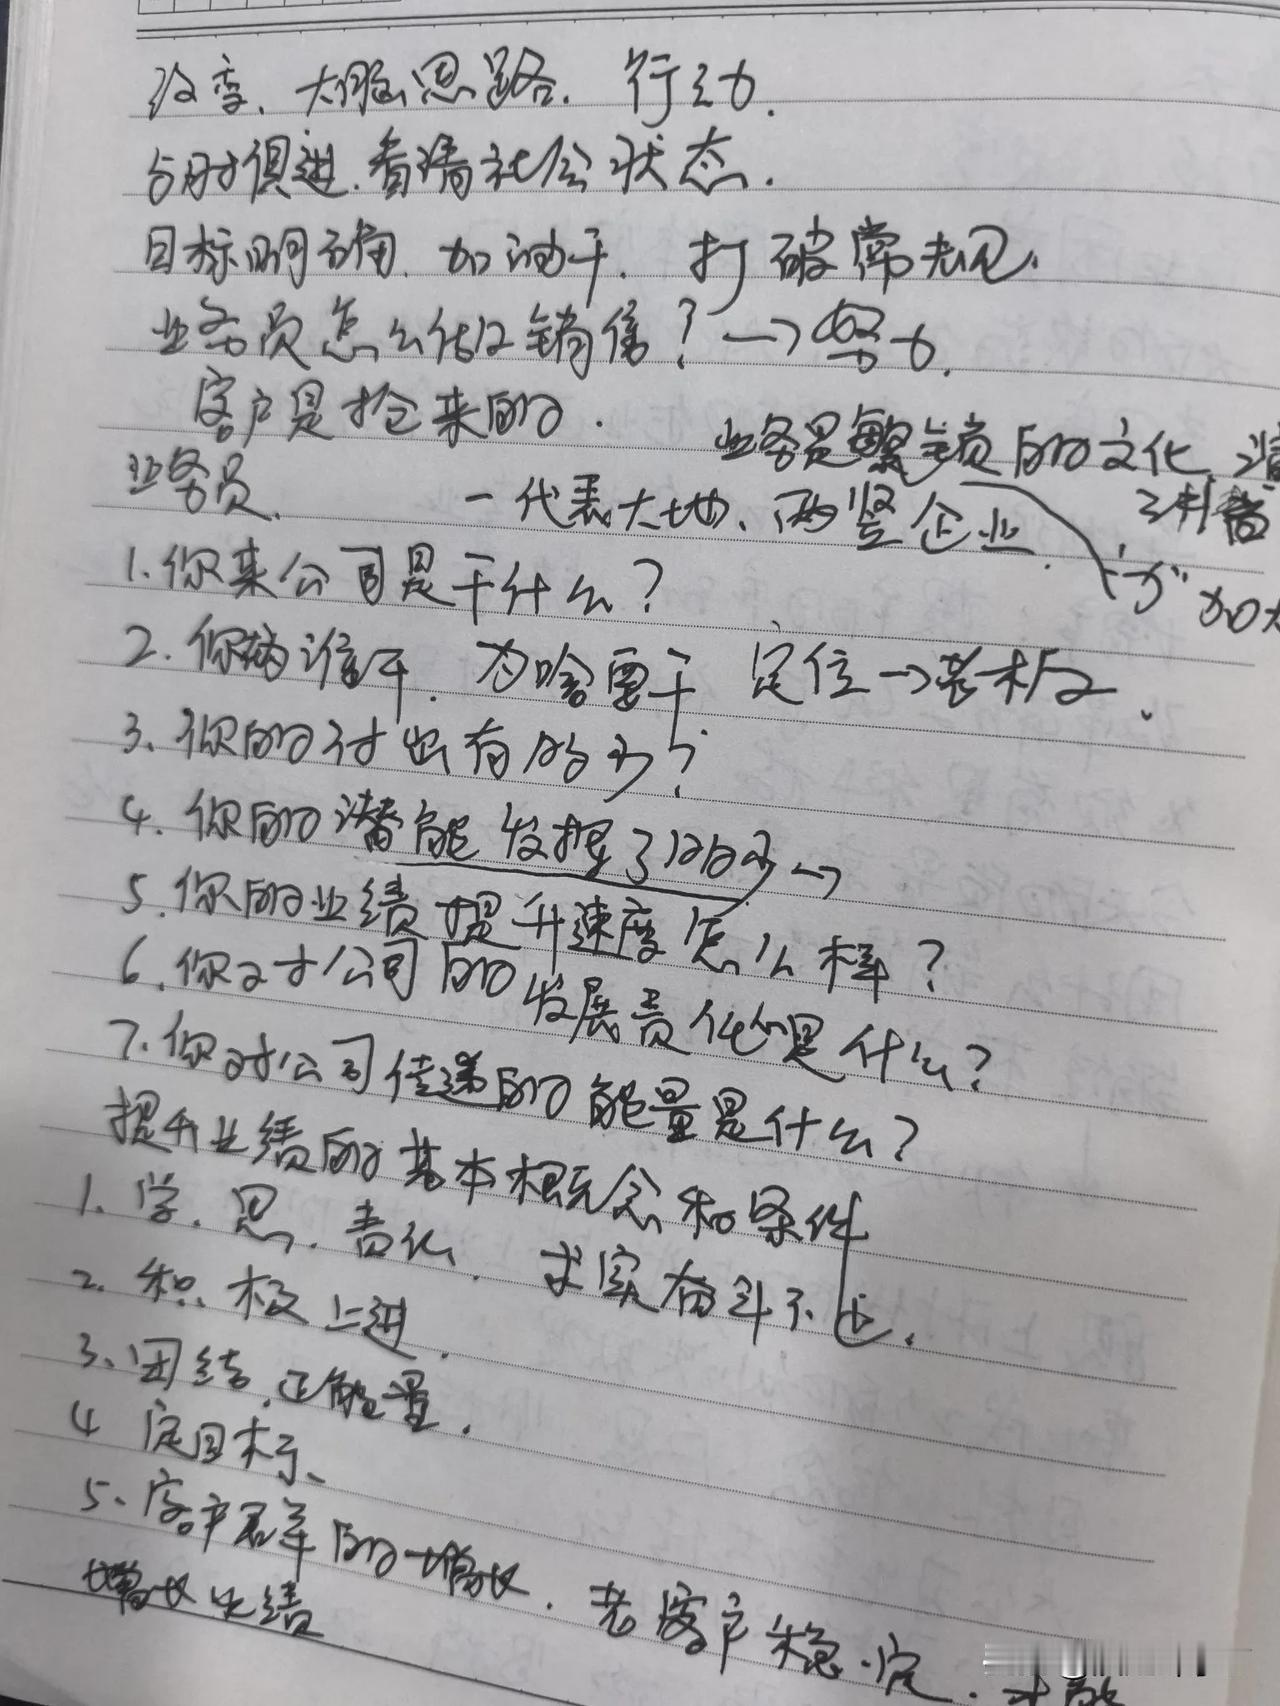 改变、大脑思路、行动.
与时俱进、看清社会状态.
目标明确、加油干、打破常规.
业务员怎么做销售?→努力.
客户是抢来的.
业务员繁锁的文化
业务员.
一代表大地、两竖企业.
"艹" 加大
1.你来公司是干什么?
2.你为谁干、为啥要干 定位→老板.
3、你的付出有多少?
4.你的潜能发挥了→
5.你的业绩提升速度怎么样?
6.你对公司的发展责化是什么?
7.你对公司传递的能量是什么?
提升业绩的基本概念和条件
1.学、思、责化、求实奋斗不止.
2.积极上进.
3、团结、正能量.
4 定目标、
5、客户君羊的增长.老客户稳定、才能
增长业绩